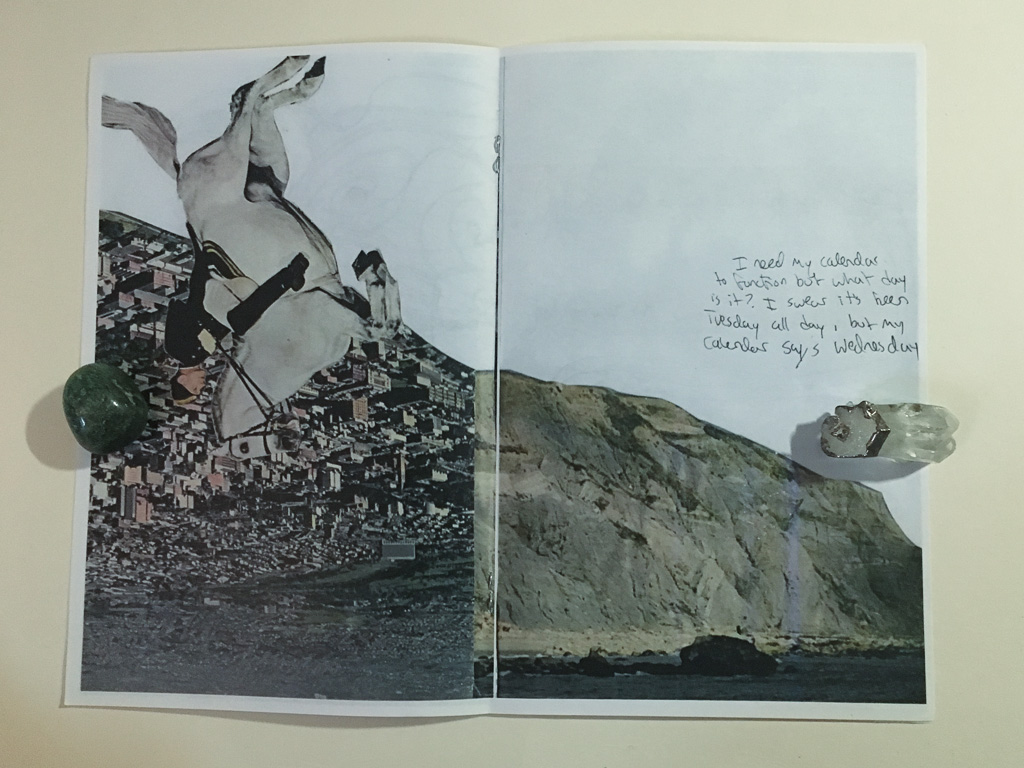 I need my calendar
to function but what day
is it? I swear it's been
Tuesday all day, but my
Calendar says Wednesday